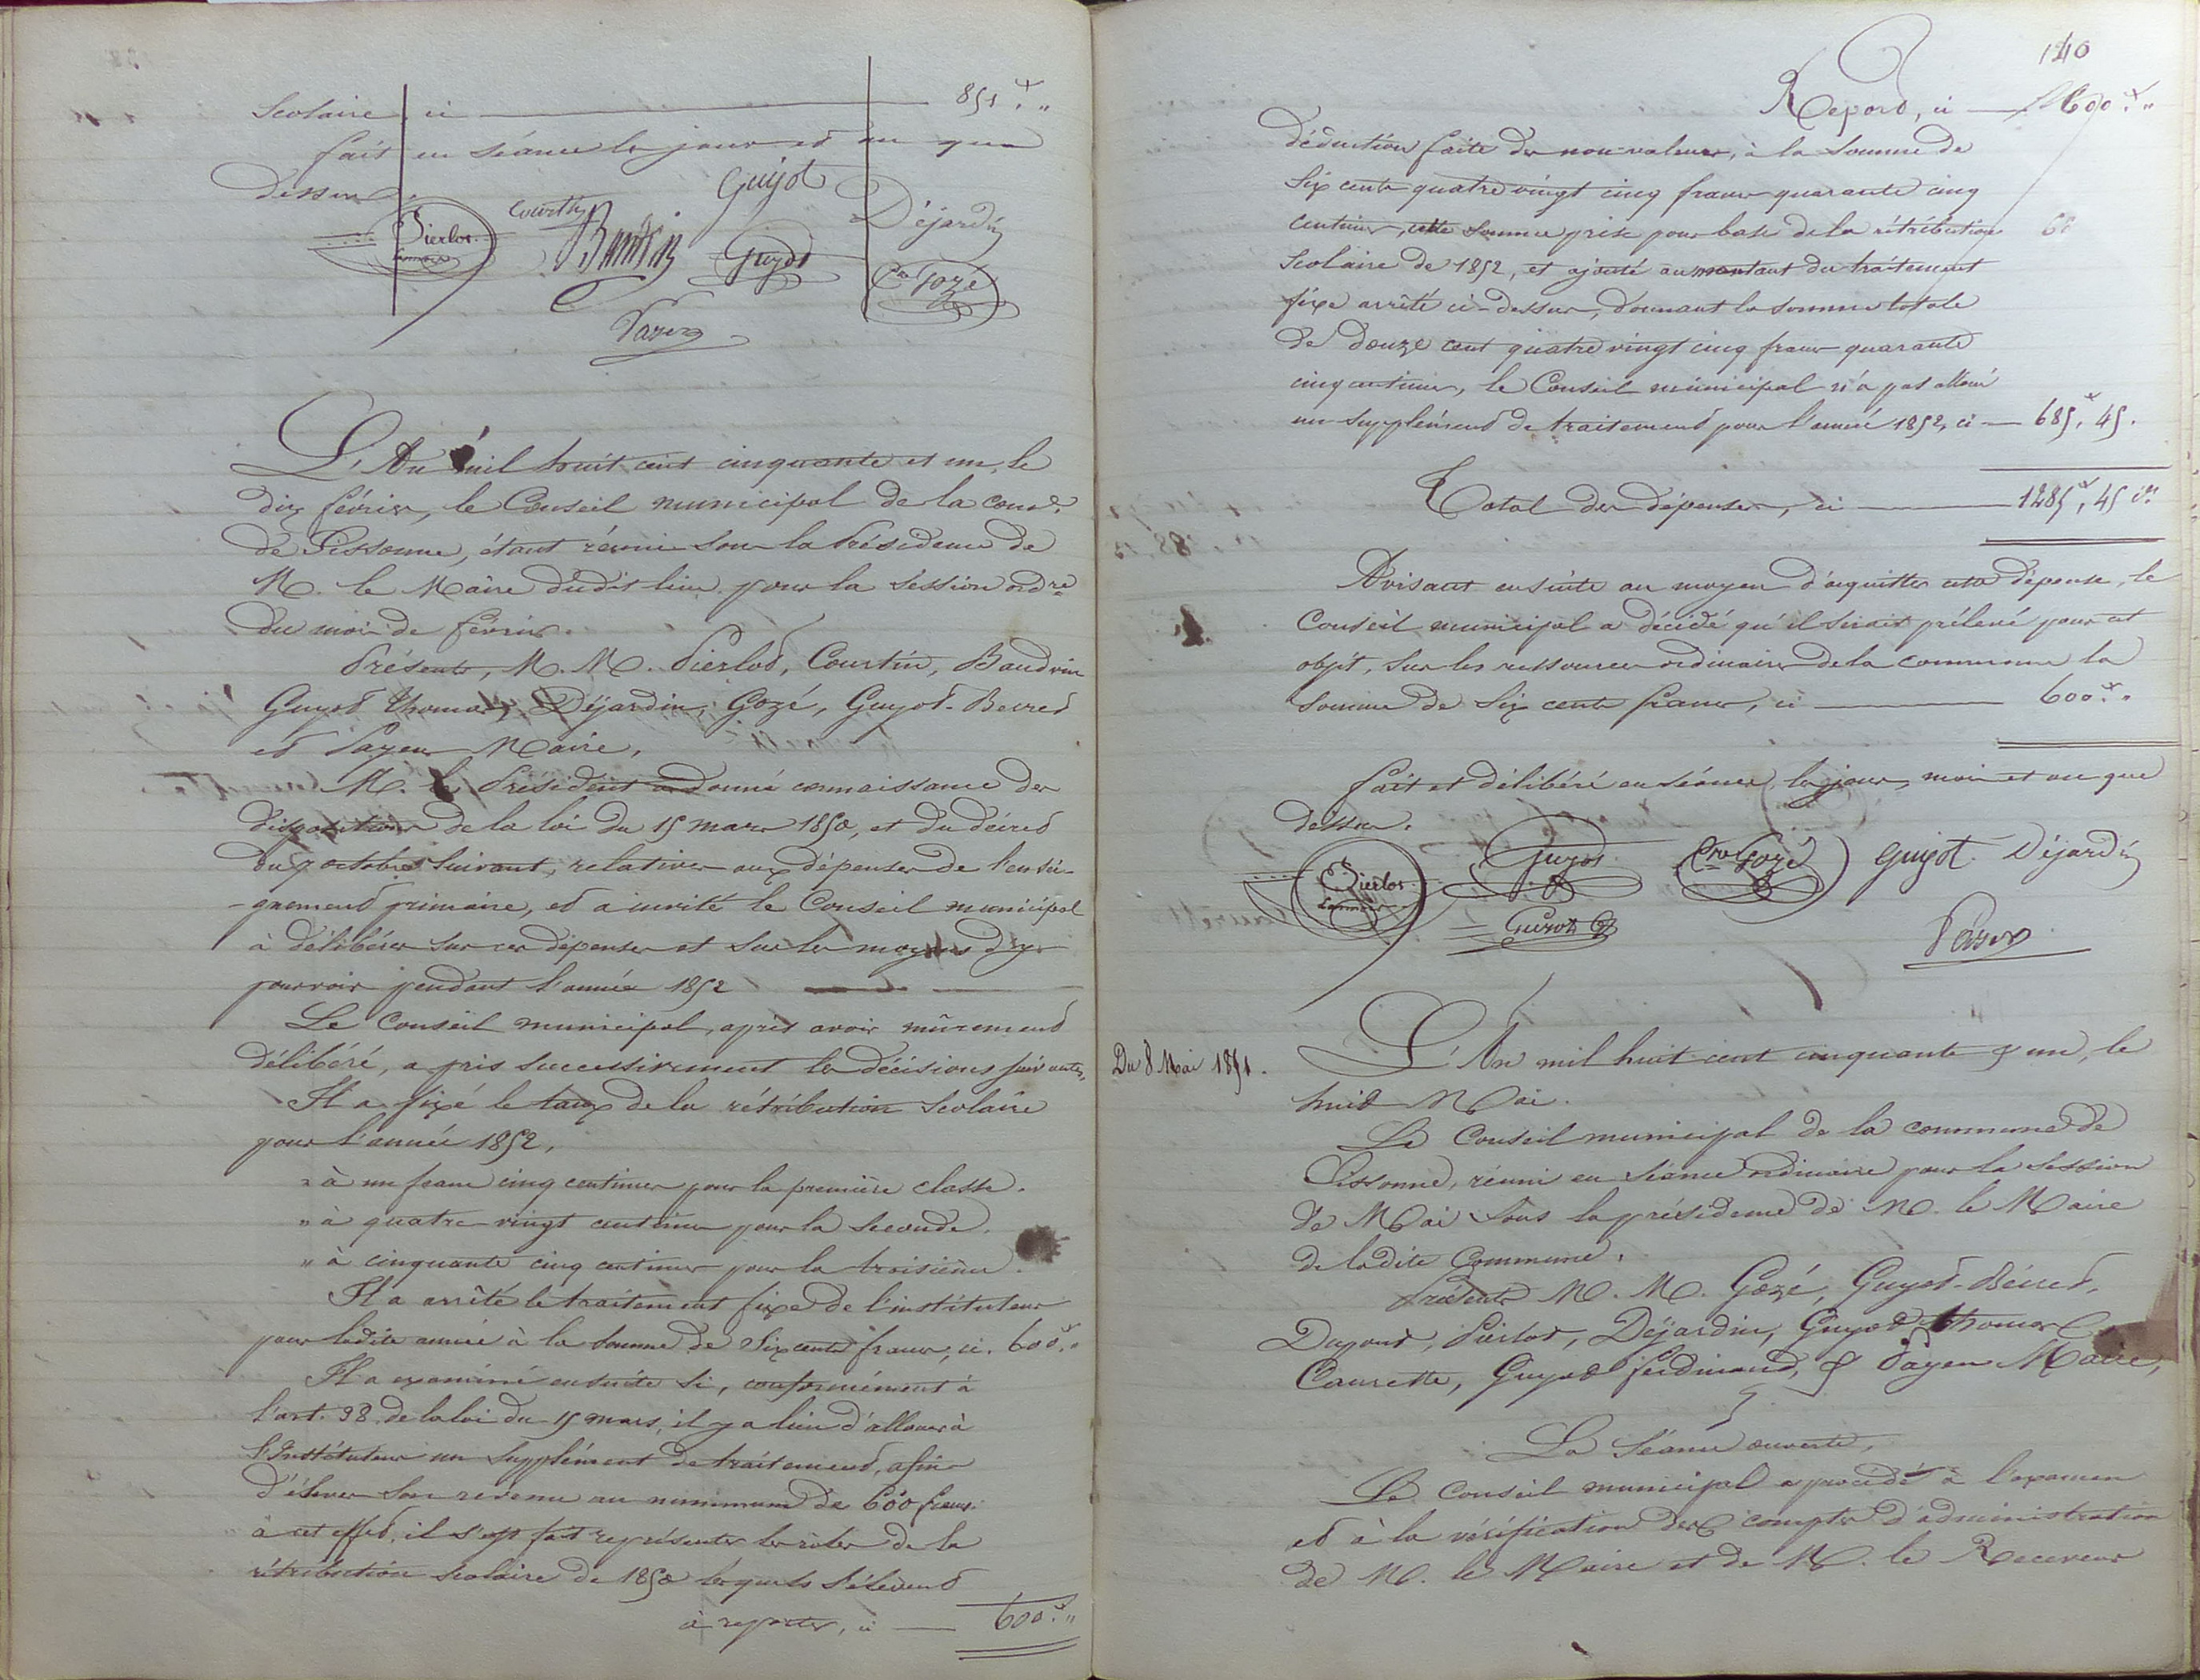 Scolaire, ci 851.f "
fait en séance les jour et an que
dessus.
Guyot
Courtin
Déjardin
Pierlot
Baudvin
Guyot
Gozé
Payen
L'An mil huit cent cinquante et un, le
dix février, le Conseil municipal de la comne.
de Sissonne, étant réuni sous la Présidence de
M. le Maire dudit lieu pour la session ordre
du mois de février.
Présents, M. M. Pierlot, Courtin, Baudvin
Guyot Thomas, Déjardin, Gozé, Guyot-Beuret
et Payen Maire,
M. le Président a donné connaissance des
dispositions de la loi du 15 mars 1850, et du décret
du 7 octobre suivant, relatives aux dépenses de l'ensei-
-gnement primaire, et a invité le Conseil municipal
à délibérer sur ces dépenses et sur les moyens d'y
pourvoir pendant l'année 1852
Le Conseil municipal, après avoir mûrement
délibéré, a pris successivement les décisions suivantes,
Il a fixé le taux de la rétribution scolaire
pour l'année 1852,
" à un franc cinq centimes pour la première classe.
" à quatre vingt centimes pour la seconde.
" à cinquante cinq centimes pour la troisième.
Il a arrêté le traitement fixe de l'instituteur
pour ladite année à la somme de Six cents francs, ci. 600.f "
Il a examiné ensuite si, conformément à
l'art. 38 de la loi du 15 mars, il y a lieu d'allouer à
l'Instituteur un supplément de traitement, afin
d'élever son revenu au minimum de 600 francs.
à cet effet, il s'est fait représenter les rôles de la
rétribution scolaire de 1850 lesquels s'élèvent
à reporter, ci 600.f "
140
Report, ci 600.f "
déduction faite des non-valeurs, à la somme de
Six cents quatre vingt cinq francs quarante cinq
centimes, cette somme prise pour base de la rétribution
Scolaire de 1852, et ajouté au montant du traitement
fixe arrêté ci-dessus, donnant la somme totale
de douze cent quatre vingt cinq francs quarante
cinq centimes, le Conseil municipal n'a pas alloué
un supplément de traitement pour l'année 1852, ci 685.f 45.
Total des dépenses, ci 1285f, 45 cs
Avisant ensuite au moyen d'acquitter cette dépense, le
Conseil municipal a décidé qu'il serait prélevé pour cet
objet, sur les ressources ordinaires de la commune la
somme de Six cents francs, ci 600.f "
fait et délibéré en séance, les jour, mois et an que
dessus.
Pierlot
Guyot
Gozé
Guyot
Déjardin
Guyot
Payen
Du 8 Mai 1851.
L'An mil huit cent cinquante & un, le
huit Mai.
Le Conseil municipal de la commune de
Sissonne, réuni en séance ordinaire pour la session
de Mai sous la présidence de M. le Maire
de ladite Commune.
Présents M. M. Gozé, Guyot-Béuret,
Dupont, Pierlot, Déjardin, Guyot Thomas
Caurette, Guyot ferdinand, & Payen Maire,
La Séance ouverte,
Le Conseil municipal a procédé à l'examen
et à la vérification des comptes d'administration
de M. le Maire et de M. le Receveur